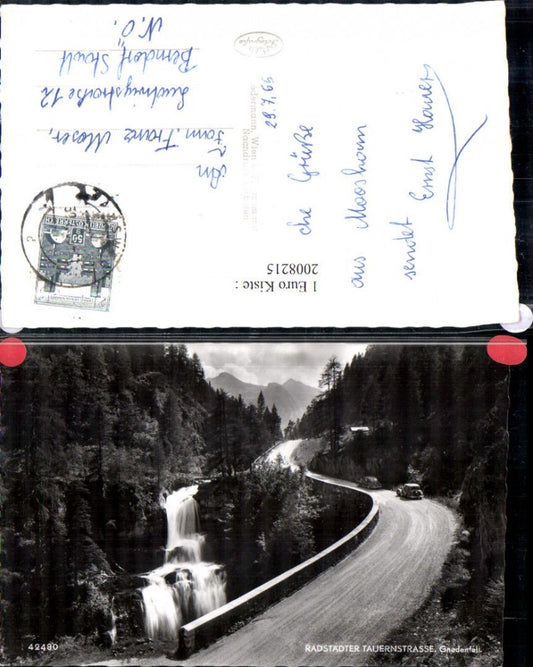 An
Fam. Franz Moser,
Ludwigstraße 12
Berndorf Stadt
N.Ö.
29.7.66
che Grüße
aus Moosham
sendet Ernst
1 Euro Kiste :
2008215
42480
RADSTÄDTER TAUERNSTRASSE, Gnadenfall